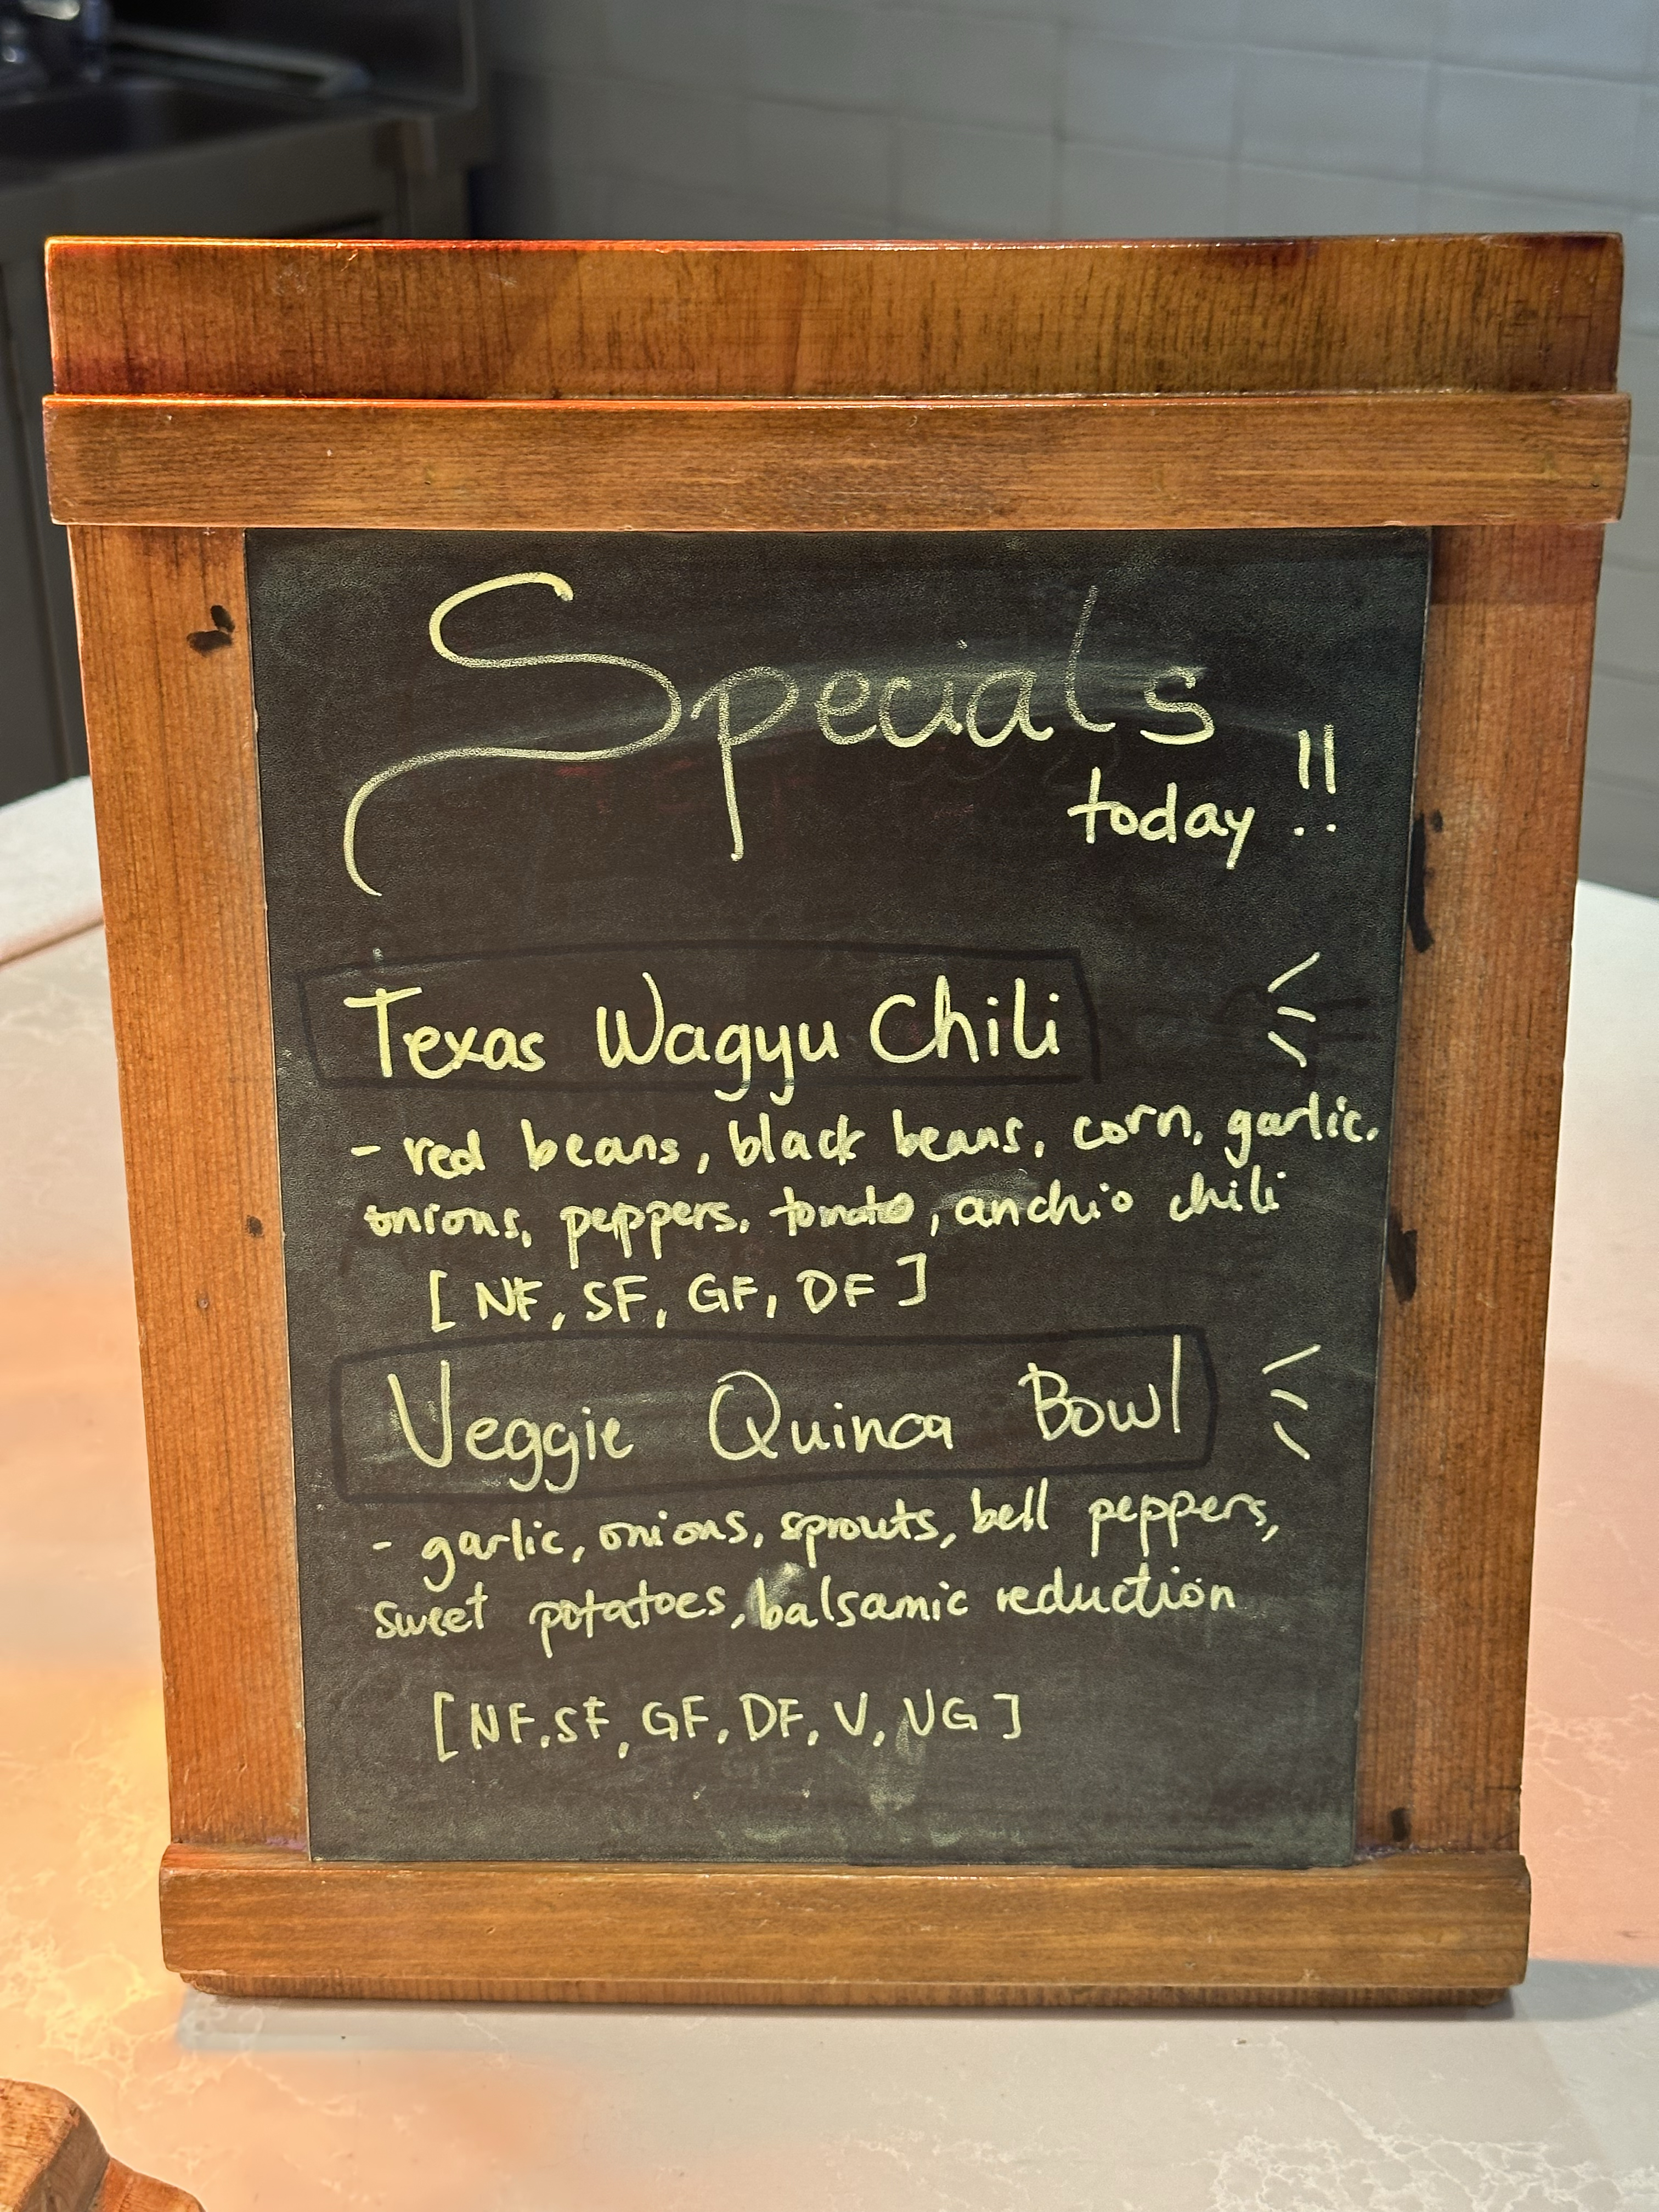 Specials
today !!
Texas Wagyu Chili
- red beans, black beans, corn, garlic,
onions, peppers, tomato, anchio chili
[ NF, SF, GF, DF ]
Veggie Quinoa Bowl
- garlic, onions, sprouts, bell peppers,
sweet potatoes, balsamic reduction
[ NF, SF, GF, DF, V, VG ]